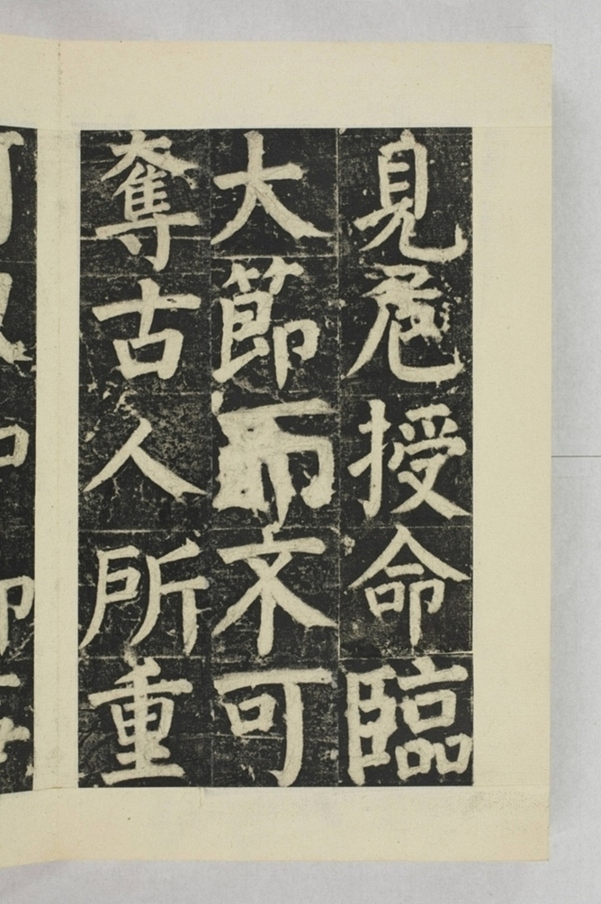 見危授命臨
大節而不可
奪古人所重